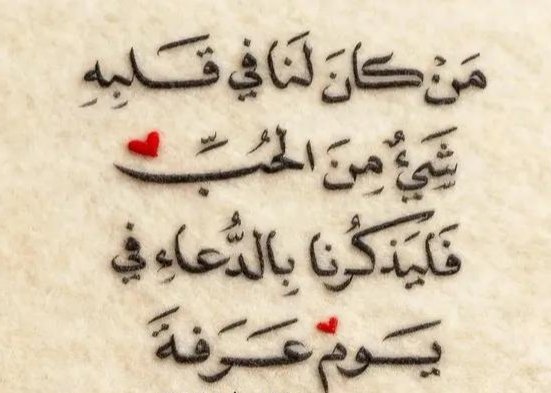 مَنْ كانَ لَنا في قَلبِهِ
شَيءٌ مِنَ الحُبِّ
فَليَذكُرنا بِالدُّعاءِ في
يَومِ عَرَفةَ